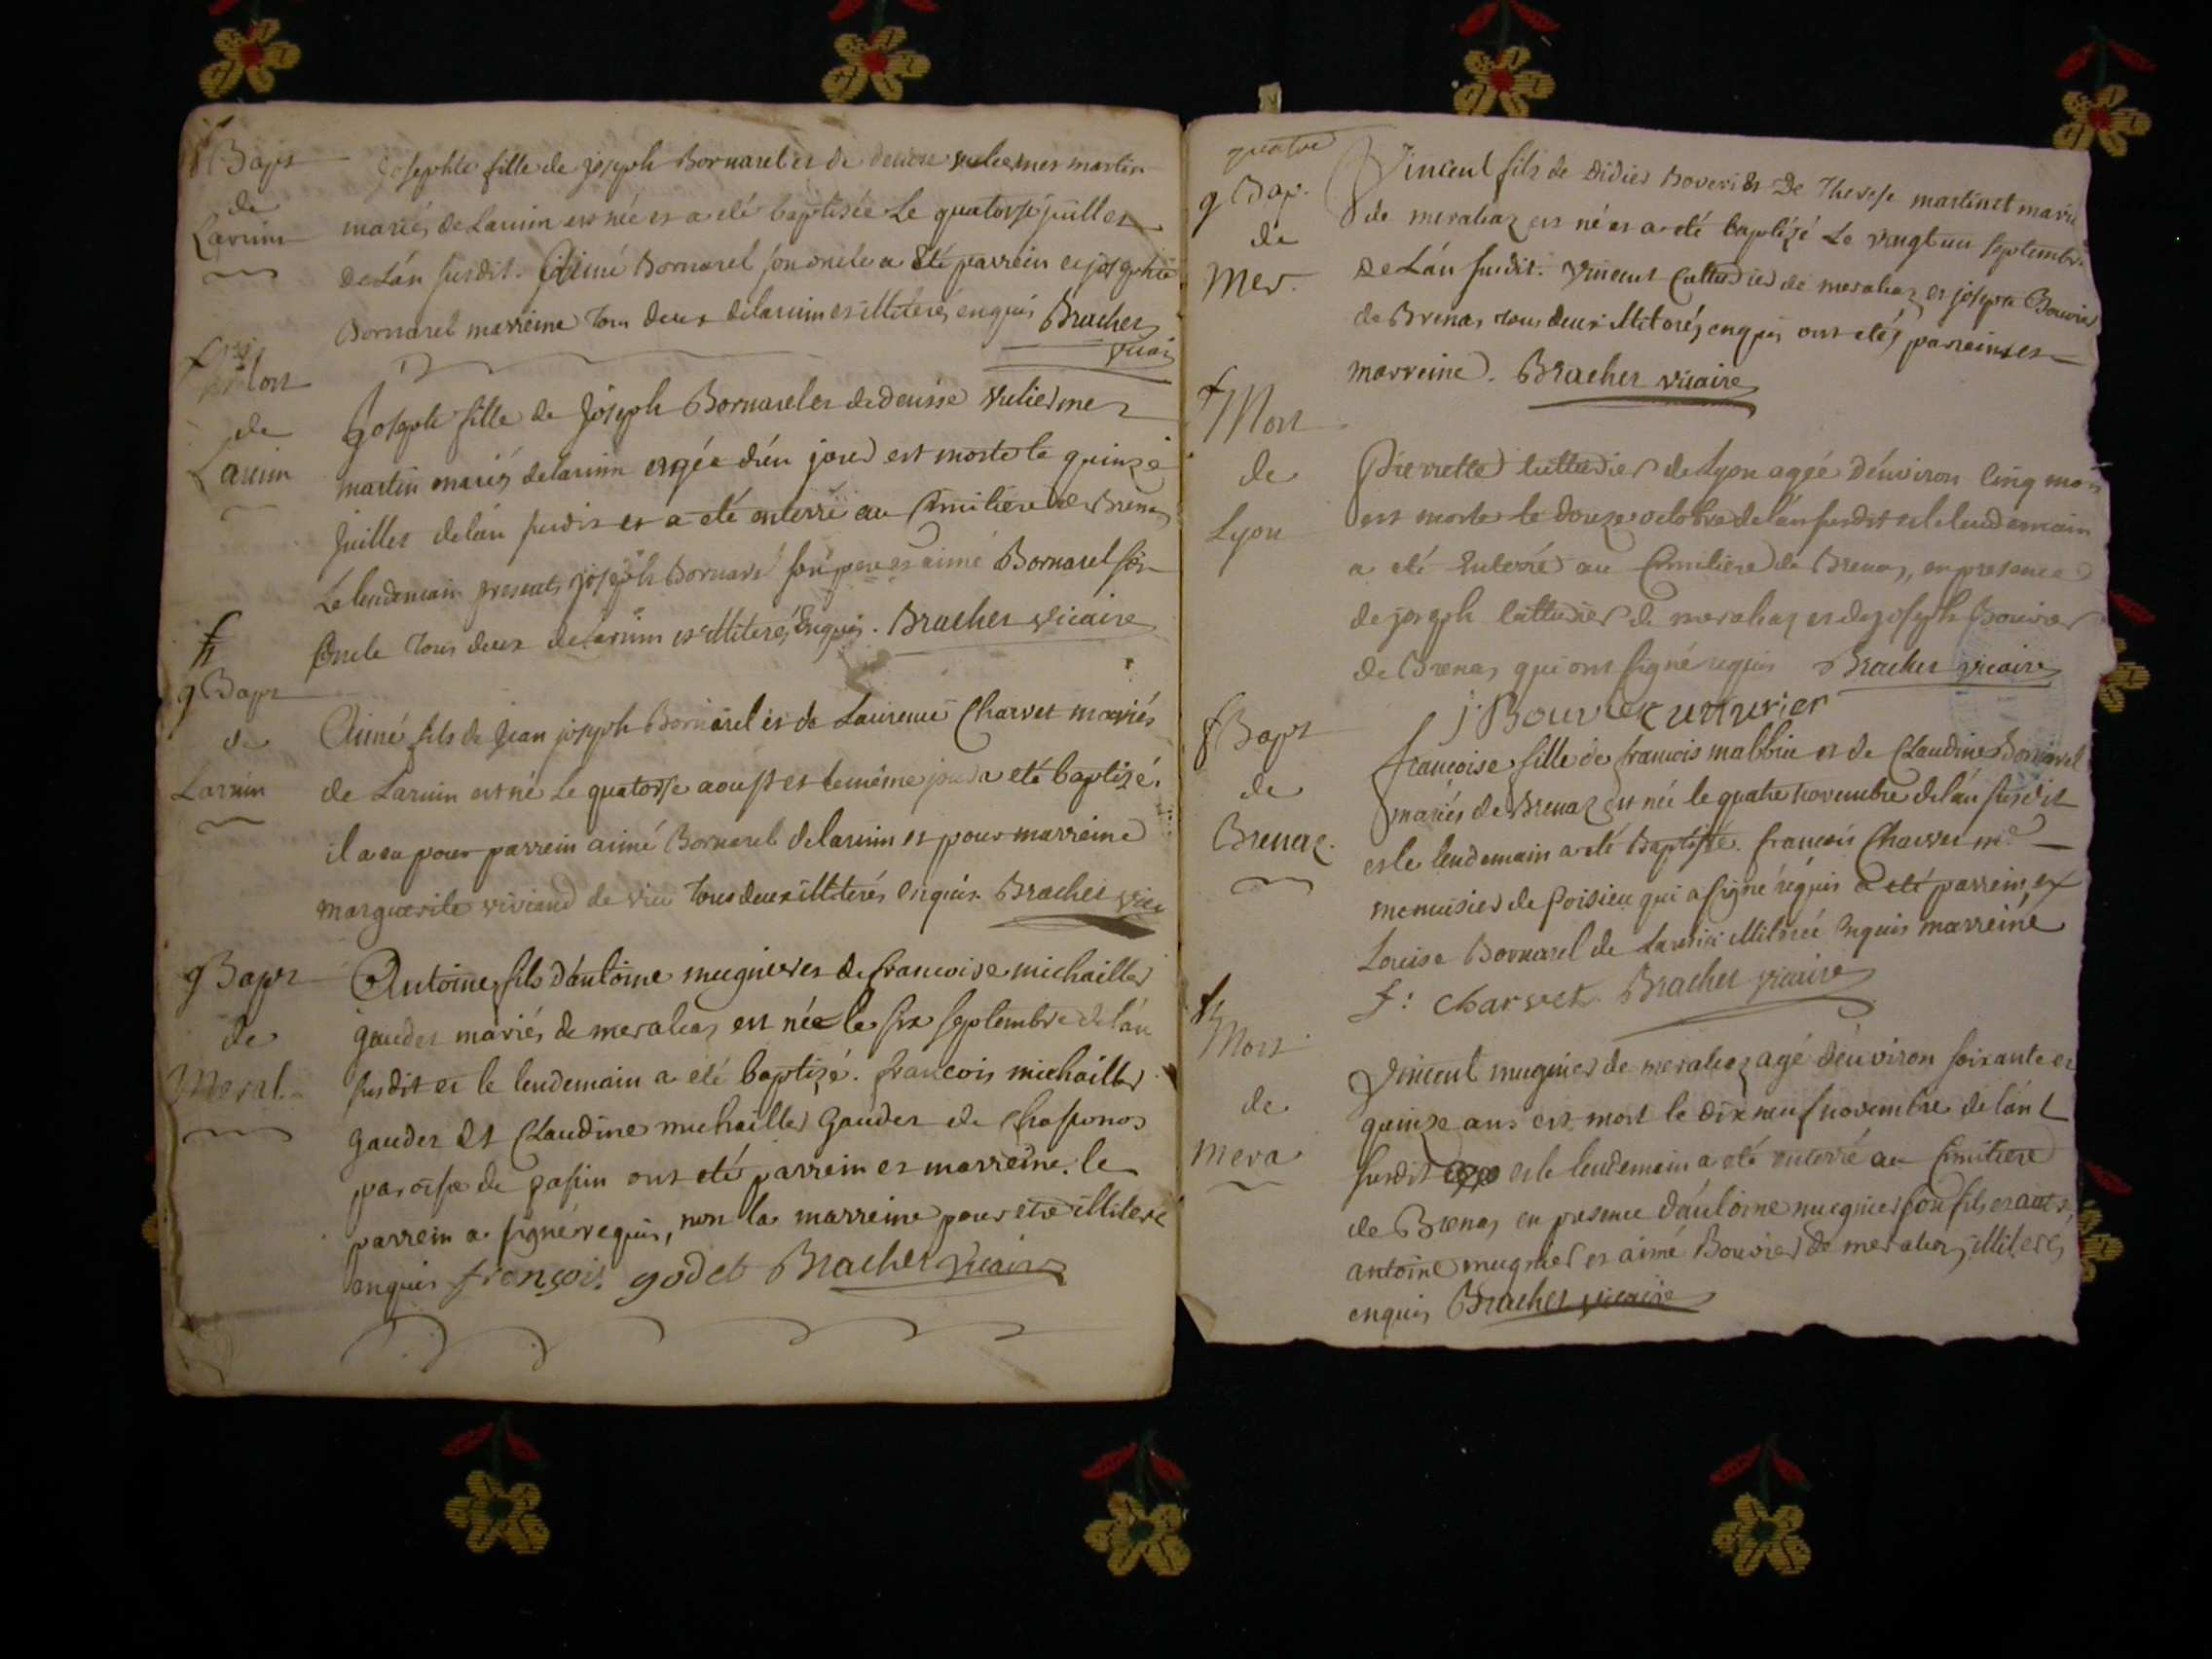 f Bapt
de
Laruin
josephte fille de joseph Bornarel et de denise vuliermes martin
mariés de Laruin est née et a eté baptisée Le quatorse juillet
de Lán susdit. Aimé Bornarel son oncle a Eté parrein et josephte
Bornarel marreine tous deux de laruin et illiterés enquis Bracher
vicai
Mort
de
Laruin
josephte fille de joseph Bornarel et de denisse vuliermes
martin mariés de laruin agée d'un jour est morte le quinze
juillet de lán susdit et a eté enterré au Cimitiere de Brenas
Le lendemain presents joseph Bornarel son pere et aimé Bornarel son
Oncle tous deux de laruin et illiterés Enquis. Bracher vicaire
g Bapt
de
Laruin
Aimé fils de jean joseph Bornarel et de Laurence Charvet mariés
de Laruin est né Le quatorse aoust et le même jour a eté baptizé.
il a eu pour parrein aimé Bornarel de laruin et pour marreine
marguerite viviand de vieu tous deux illiterés enquis. Bracher vica
g Bapt
de
Meral.
Antoine fils dántoine mugnier et de francoise michaillet
gaudet mariés de meraleaz est née le six septembre de lán
susdit et le lendemain a eté baptizé. francois michaillet
gaudet Et Claudine michaillet gaudet de Chasponos
paroisse de passin ont eté parrein et marreine. le
parrein a signé requis, non la marreine pour etre illiteré
enquis françois godet Bracher vicaire
quatre
g Bap.
de
Mer.
Vincent fils de didier Boveri Et De Therese martinet mariés
de meraleaz est né et a eté baptizé Le vingt un septembre
de Lán susdit. vincent Cuttudier de meraleaz et josepte Bouvier
de Brenas tous deux illiterés enquis ont etés parrein et
marreine. Bracher vicaire
f Mort
de
Lyon
Pierrette Cuttudier de Lyon aggé dénviron Cinq mois
est morte le douze octobre de lán susdit et le lendemain
a eté Enterré au Cimitiere de Brenas, en presence
de joseph Cuttudier de meraleaz et de joseph Bouvier
de Brenas qui ont signé requis Bracher vicaire
j. Bouvier
f Bapt
de
Brenaz.
francoise fille de francois mabbin et de Claudine Bornarel
mariés de Brenaz est née le quatre novembre de lán susdit
et le lendemain a eté Baptisée. francois Charvet me
menuisier de Poisieu qui a signé requis a eté parrein et
Louise Bornarel de Laruin illiterée Enquis marreine
f: charvet Bracher vicaire
Mort
de
Mera
Vincent mugnier de meraleaz agé dénviron soixante et
quinze ans est mort le dix neuf novembre de lánt
susdit et le lendemain a eté enterré au Cimitiere
de Brenas en presence dántoine mugnier son fils et autre
antoine mugnier et aimé Bouvier de meraleaz illiterés
enquis Bracher vicaire